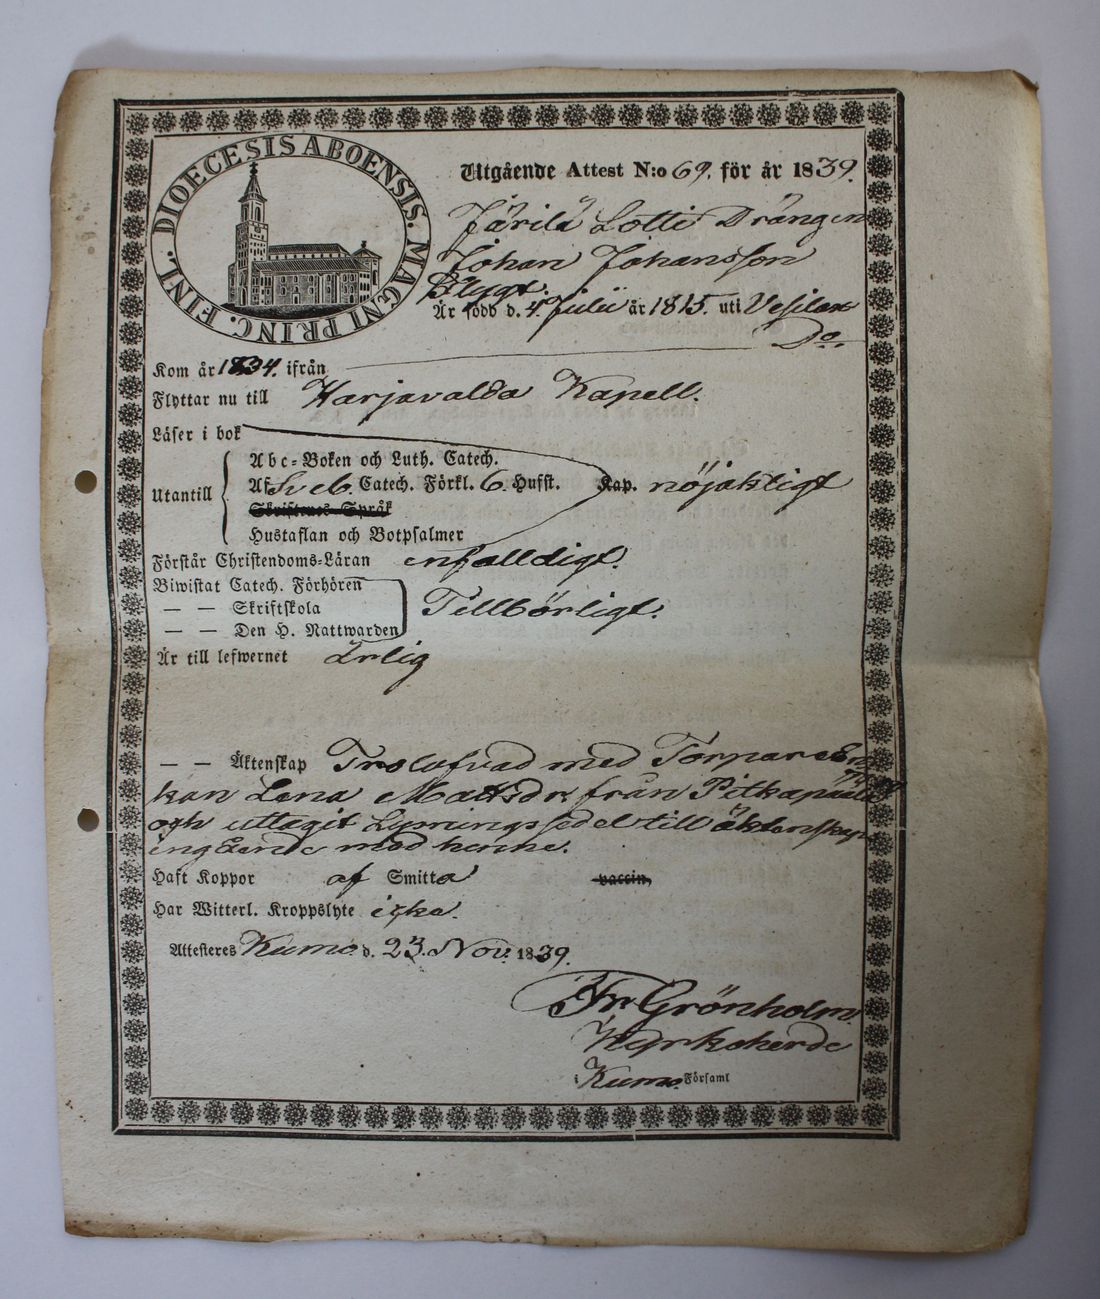 DIOECESIS ABOENSIS. MAGNI PRINC. FINL.
Utgående Attest N:o 69. för år 1839.
Järilä Lotti Drängen
Johan Johansson
Blygt.
Är född d. 4 Julii år 1815 uti Vesilax
Kom år 1834. ifrån Do.
Flyttar nu till Harjavalda Kapell.
Läser i bok
Abc-Boken och Luth. Catech.
Utantill Af Sveb. Catech. Förkl. 6. Hufst. Kap. nöjaktigt
Skriftenes Språk
Hustaflan och Botpsalmer
Förstår Christendoms-Läran enfalldigt.
Biwistat Catech. Förhören
— — Skriftskola Tillbörligt.
— — Den H. Nattwarden
Är till lefwernet Ärlig
— — Äktenskap Trolofvad med Torpare En-
kan Lena Mattsdr från Pitkäpäälä
och uttagit Lysningssedel till äktenskaps
ingående med henne.
Haft Koppor af Smitta vaccin,
Har Witterl. Kroppslyte icke.
Attesteres Kumo d. 23. Nov. 1839.
Fr Grönholm
Kyrkoherde
i Kumo Församl